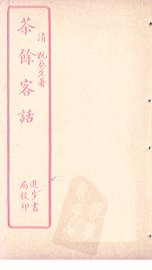 茶餘客話
清 阮葵生著
進步書
局校印